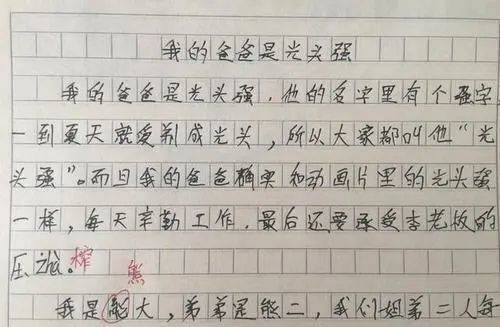 我的爸爸是光头强
我的爸爸是光头强,他的名字里有个强字
一到夏天就爱剃成光头,所以大家都叫他“光
头强”。而且我的爸爸确实和动画片里的光头强
一样,每天辛勤工作.最后还要承受李老板的
压。榨
熊
我是大,弟弟是熊二,我们姐弟二人每